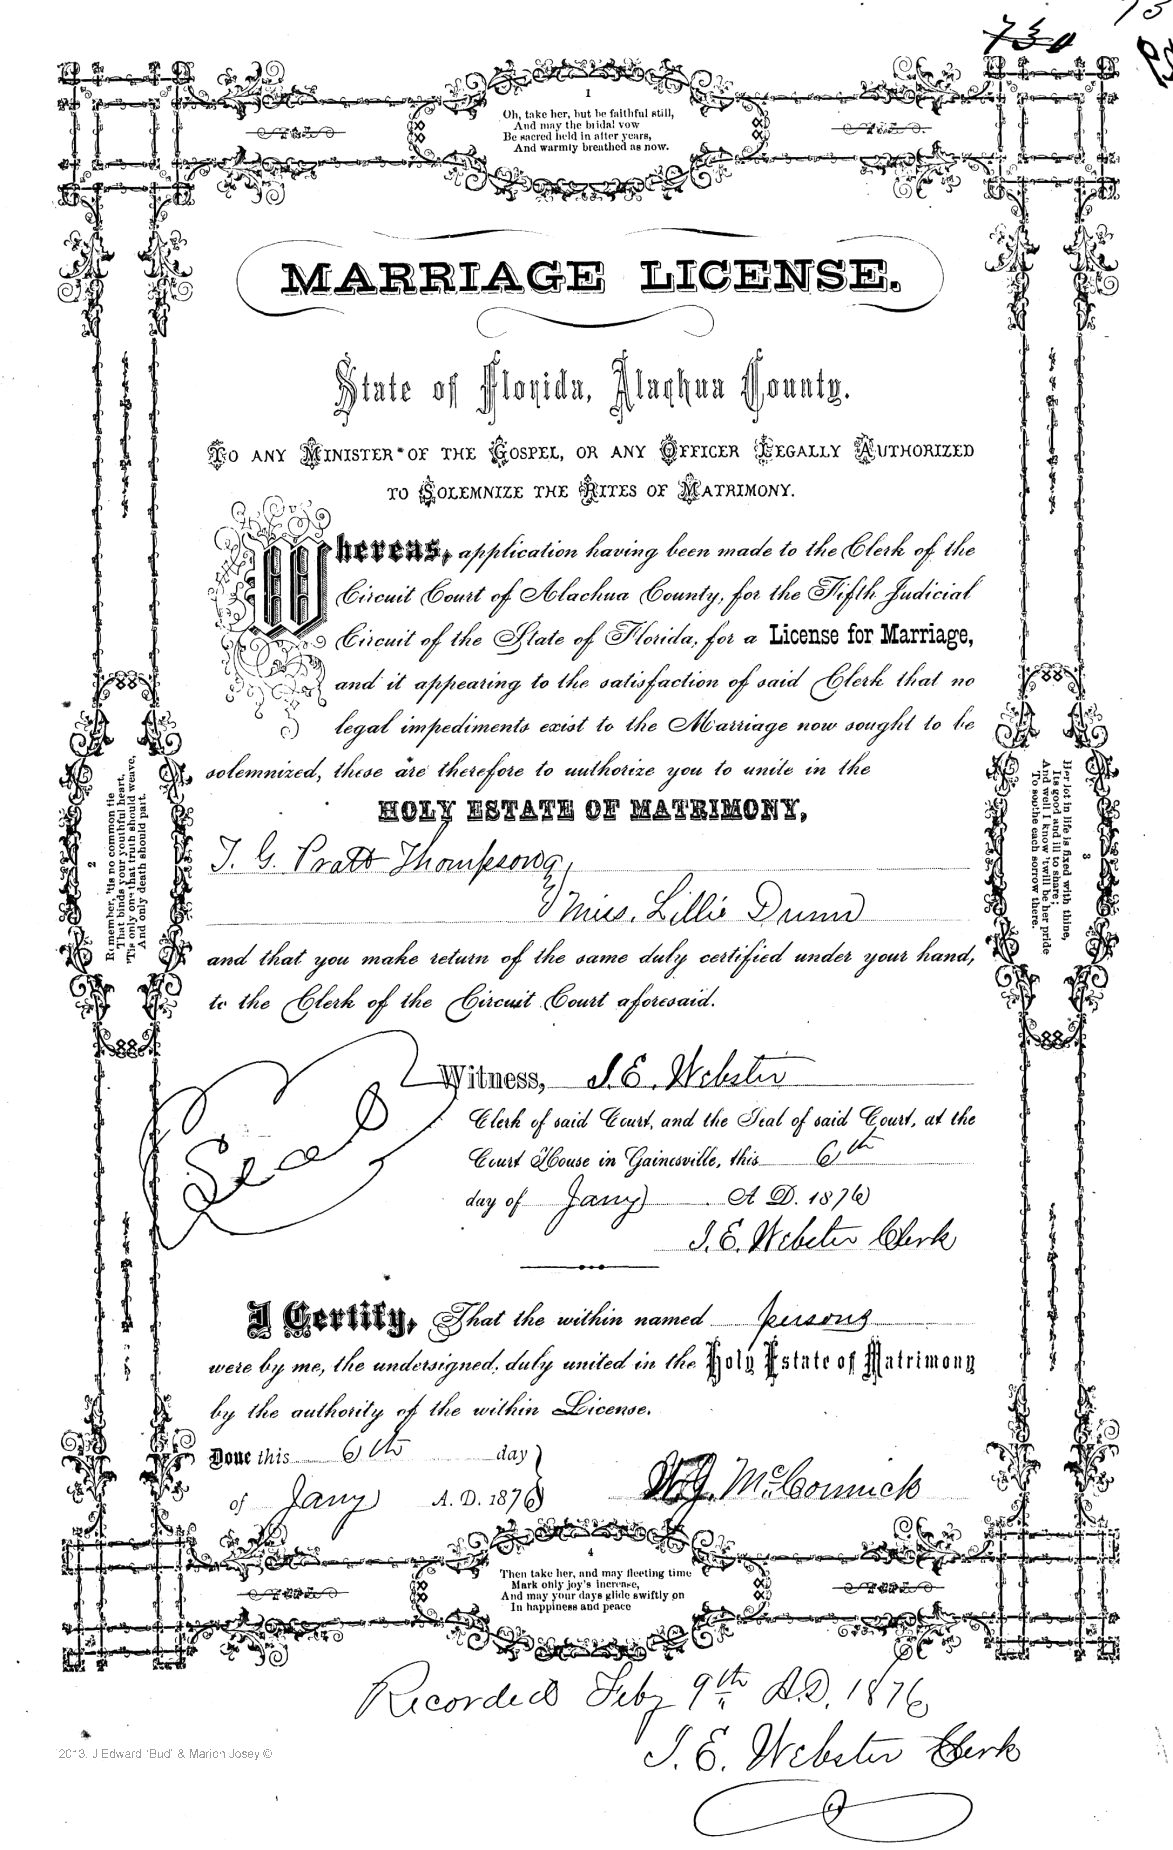 730
1
Oh, take her, but be faithful still,
And may the bridal vow
Be sacred held in after years,
And warmly breathed as now.
MARRIAGE LICENSE.
State of Florida, Alachua County.
TO ANY MINISTER OF THE GOSPEL, OR ANY OFFICER LEGALLY AUTHORIZED
TO SOLEMNIZE THE RITES OF MATRIMONY.
Whereas, application having been made to the Clerk of the
Circuit Court of Alachua County, for the Fifth Judicial
Circuit of the State of Florida, for a License for Marriage,
and it appearing to the satisfaction of said Clerk that no
legal impediments exist to the Marriage now sought to be
solemnized, these are therefore to authorize you to unite in the
HOLY ESTATE OF MATRIMONY,
T. G. Pratt Thompson
& Miss. Lillie Dunn
and that you make return of the same duly certified under your hand,
to the Clerk of the Circuit Court aforesaid.
2
Remember, 'tis no common tie
That binds your youthful heart,
'Tis only one that truth should weave,
And only death should part.
3
Her lot in life is fixed with thine,
Its good and ill to share;
And well I know 'twill be her pride
To soothe each sorrow there.
Seal
Witness, J. E. Webster
Clerk of said Court, and the Seal of said Court, at the
Court House in Gainesville, this 6th
day of Jany A. D. 1876
J. E. Webster Clerk
I Certify, That the within named persons
were by me, the undersigned, duly united in the Holy Estate of Matrimony
by the authority of the within License.
Done this 6th day
of Jany A. D. 1876
W. J. McCormick
4
Then take her, and may fleeting time
Mark only joy's increase,
And may your days glide swiftly on
In happiness and peace
Recorded Feby 9th A.D. 1876
J. E. Webster Clerk
2013. J Edward 'Bud' & Marion Josey ©